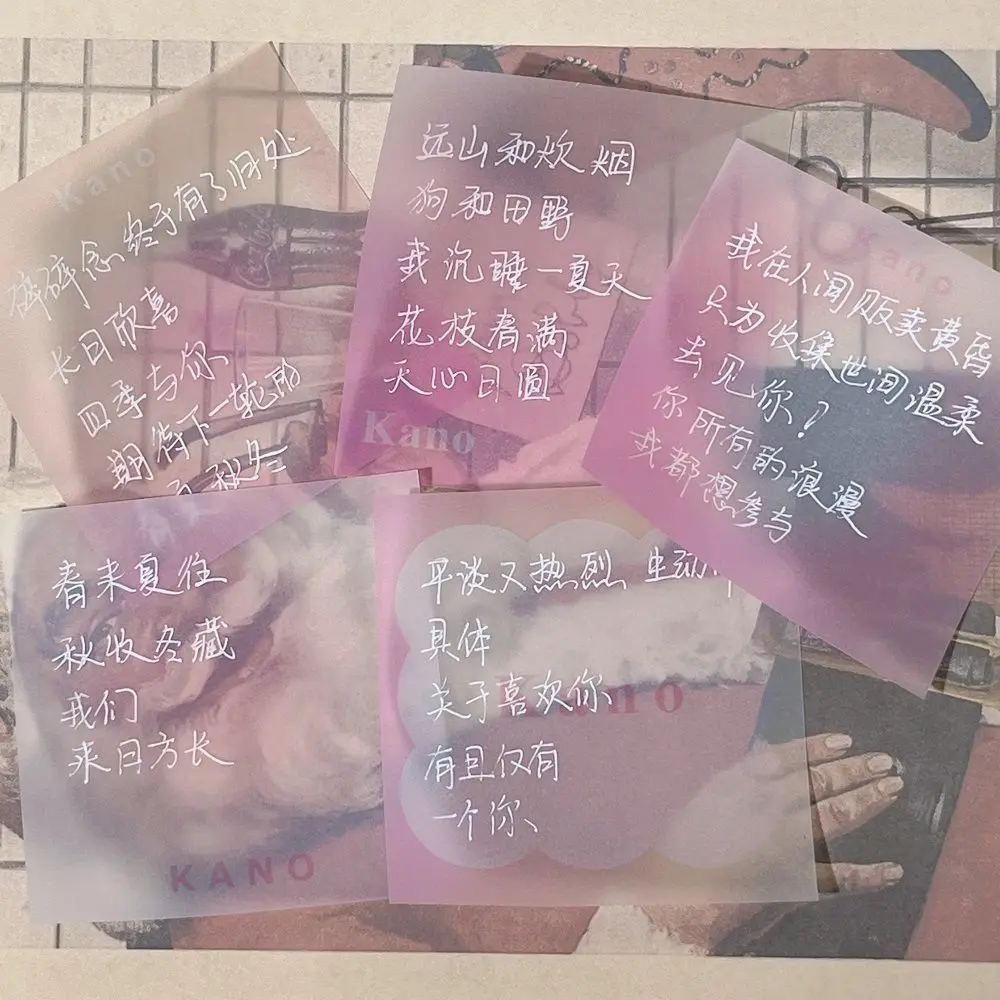 Kano
碎碎念终于有了归处
长日欣喜
四季与你
期待下一轮的
秋冬
远山和炊烟
狗和田野
我沉睡一夏天
花枝春满
天心月圆
Kano
Kano
我在人间贩卖黄昏
只为收集世间温柔
去见你!
你所有的浪漫
我都想参与
春来夏往
秋收冬藏
我们
来日方长
KANO
平淡又热烈 生动
具体
关于喜欢你
有且仅有
一个你
Kano